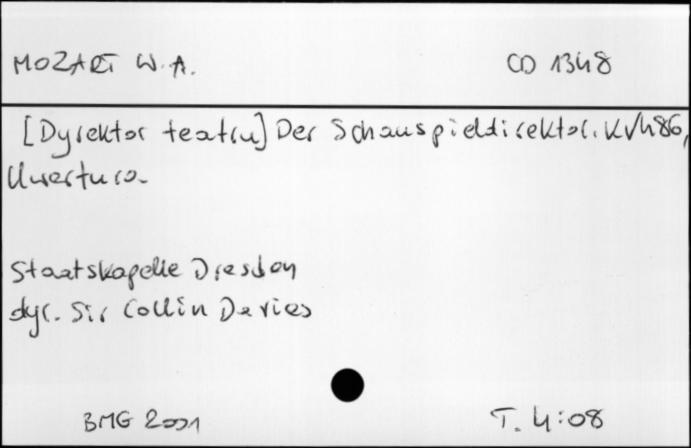 MOZART W. A.
CD 1348
[Dyrektor teatru] Der Schauspieldirektor. KV486,
Uwertura.
Staatskapelle Dresden
dyr. Sir Collin Davies
BMG 2001
T. 4:08